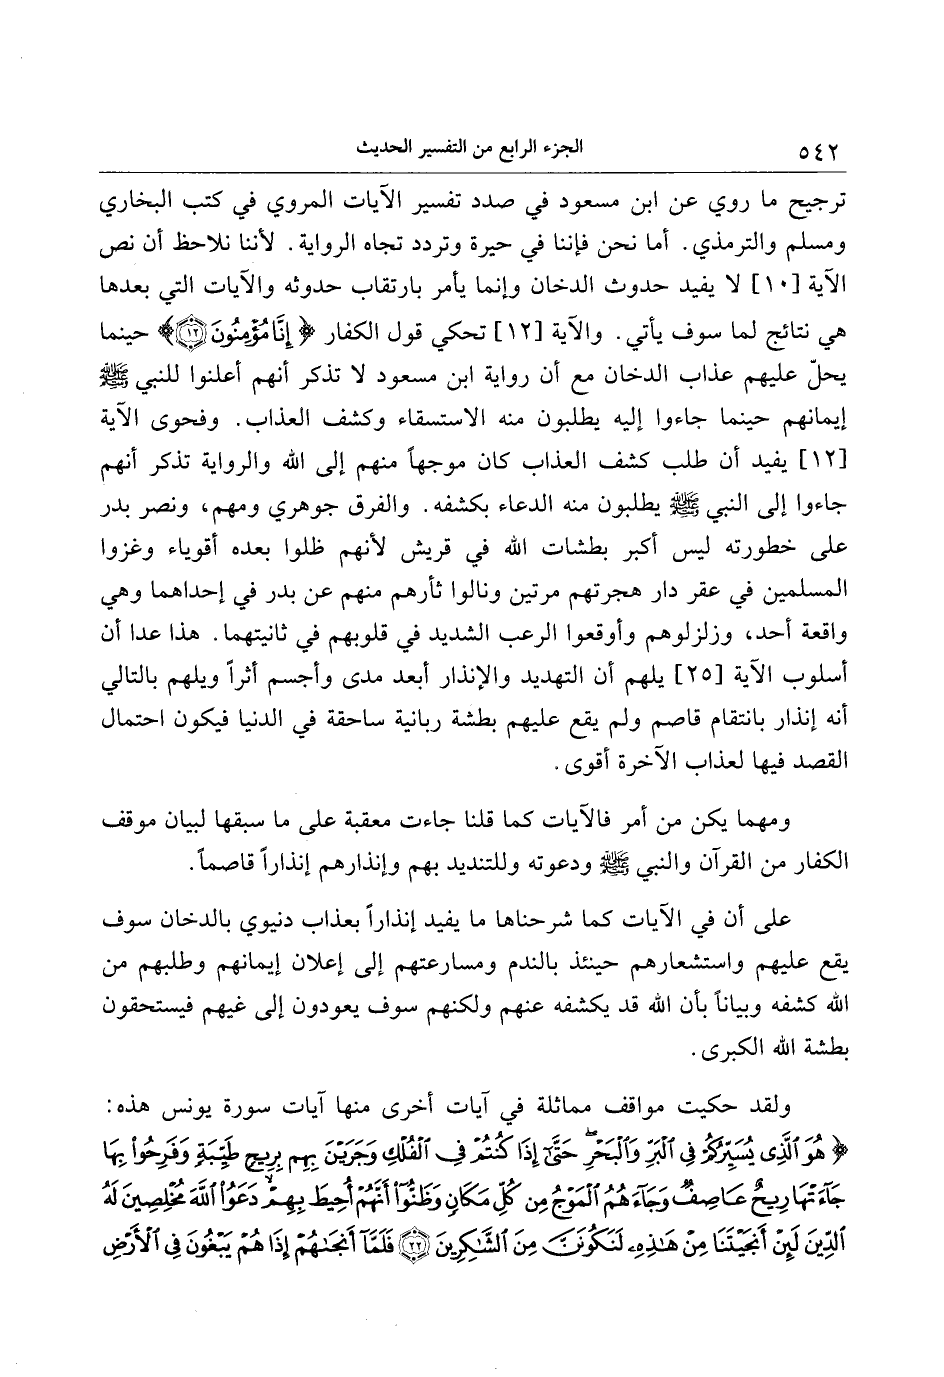 ٥٤٢ الجزء الرابع من التفسير الحديث
ترجيح ما روي عن ابن مسعود في صدد تفسير الآيات المروي في كتب البخاري
ومسلم والترمذي. أما نحن فإننا في حيرة وتردد تجاه الرواية. لأننا نلاحظ أن نص
الآية [١٠] لا يفيد حدوث الدخان وإنما يأمر بارتقاب حدوثه والآيات التي بعدها
هي نتائج لما سوف يأتي. والآية [١٢] تحكي قول الكفار ﴿ إِنَّا مُؤْمِنُونَ ١٢﴾ حينما
يحلّ عليهم عذاب الدخان مع أن رواية ابن مسعود لا تذكر أنهم أعلنوا للنبي ﷺ
إيمانهم حينما جاءوا إليه يطلبون منه الاستسقاء وكشف العذاب. وفحوى الآية
[١٢] يفيد أن طلب كشف العذاب كان موجهاً منهم إلى الله والرواية تذكر أنهم
جاءوا إلى النبي ﷺ يطلبون منه الدعاء بكشفه. والفرق جوهري ومهم، ونصر بدر
على خطورته ليس أكبر بطشات الله في قريش لأنهم ظلوا بعده أقوياء وغزوا
المسلمين في عقر دار هجرتهم مرتين ونالوا ثأرهم منهم عن بدر في إحداهما وهي
واقعة أحد، وزلزلوهم وأوقعوا الرعب الشديد في قلوبهم في ثانيتهما. هذا عدا أن
أسلوب الآية [٢٥] يلهم أن التهديد والإنذار أبعد مدى وأجسم أثراً ويلهم بالتالي
أنه إنذار بانتقام قاصم ولم يقع عليهم بطشة ربانية ساحقة في الدنيا فيكون احتمال
القصد فيها لعذاب الآخرة أقوى.
ومهما يكن من أمر فالآيات كما قلنا جاءت معقبة على ما سبقها لبيان موقف
الكفار من القرآن والنبي ﷺ ودعوته وللتنديد بهم وإنذارهم إنذاراً قاصماً.
على أن في الآيات كما شرحناها ما يفيد إنذاراً بعذاب دنيوي بالدخان سوف
يقع عليهم واستشعارهم حينئذ بالندم ومسارعتهم إلى إعلان إيمانهم وطلبهم من
الله كشفه وبياناً بأن الله قد يكشفه عنهم ولكنهم سوف يعودون إلى غيهم فيستحقون
بطشة الله الكبرى.
ولقد حكيت مواقف مماثلة في آيات أخرى منها آيات سورة يونس هذه:
﴿ هُوَ ٱلَّذِى يُسَيِّرُكُمْ فِى ٱلْبَرِّ وَٱلْبَحْرِ ۖ حَتَّىٰٓ إِذَا كُنتُمْ فِى ٱلْفُلْكِ وَجَرَيْنَ بِهِم بِرِيحٍ طَيِّبَةٍ وَفَرِحُوا۟ بِهَا
جَآءَتْهَا رِيحٌ عَاصِفٌ وَجَآءَهُمُ ٱلْمَوْجُ مِن كُلِّ مَكَانٍ وَظَنُّوٓا۟ أَنَّهُمْ أُحِيطَ بِهِمْ ۙ دَعَوُا۟ ٱللَّهَ مُخْلِصِينَ لَهُ
ٱلدِّينَ لَئِنْ أَنجَيْتَنَا مِنْ هَـٰذِهِۦ لَنَكُونَنَّ مِنَ ٱلشَّـٰكِرِينَ ٢٢ فَلَمَّآ أَنجَىٰهُمْ إِذَا هُمْ يَبْغُونَ فِى ٱلْأَرْضِ